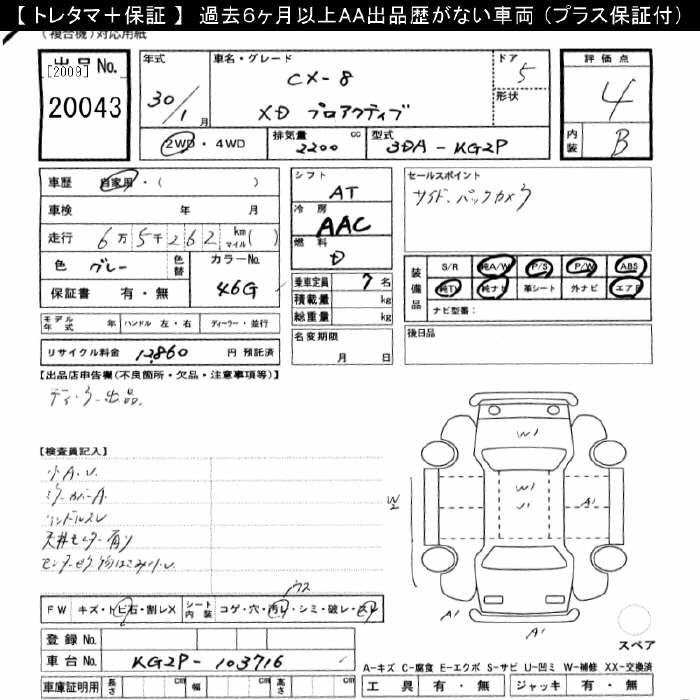 【 トレタマ＋保証 】 過去6ヶ月以上AA出品歴がない車両 (プラス保証付)
(複合機) 対応用紙
出品 No.
[2009]
20043
年式
30/1 月
車名・グレード
CX-8
XD プロアクティブ
ドア 5
形状
評価点
4
内装 B
2WD ・ 4WD
排気量 2200 cc
型式 3DA-KG2P
車歴 自家用・( )
車検 年 月
走行 6万5千262 km マイル ( )
色 グレー
色替
カラーNo. 46G
保証書 有・無
シフト AT
冷房 AAC
燃料 D
乗車定員 7 名
積載量 kg
総重量 kg
セールスポイント
サイド・バックカメラ
装備品
S/R 純A/W P/S P/W ABS
純TV 純ナビ 革シート 外ナビ エアB
ナビ型番：
モデル年式 年 ハンドル 左・右 ディーラー・並行
リサイクル料金 12,860 円 預託済
名変期限
月 日
後日品
【出品店申告欄(不良箇所・欠品・注意事項等)】
ディーラー出品。
【検査員記入】
小A・U
ミラーカバーA
ハンドルスレ
天井モニター有り
W1
W1
U1
A1
W2
A1
A1
FW キズ・トビ石・割レX
シート内装 コゲ・穴・汚レ・シミ・破レ・スレ
登録 No.
車台 No. KG2P-103716
車庫証明用 長さ cm 幅 cm 高さ cm
スペア
A-キズ C-腐食 E-エクボ S-サビ U-凹ミ W-補修 XX-交換済
工具 有・無 ジャッキ 有・無